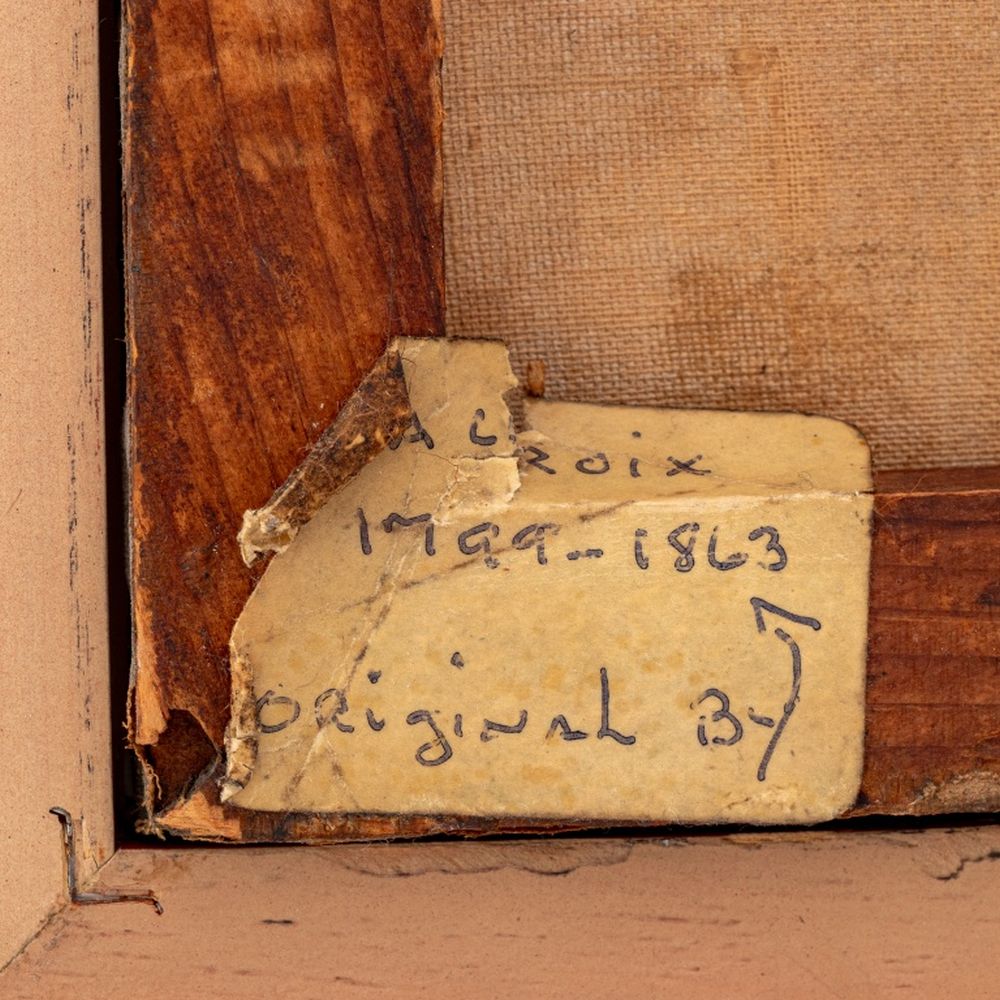 A Croix
1799-1863
Original By